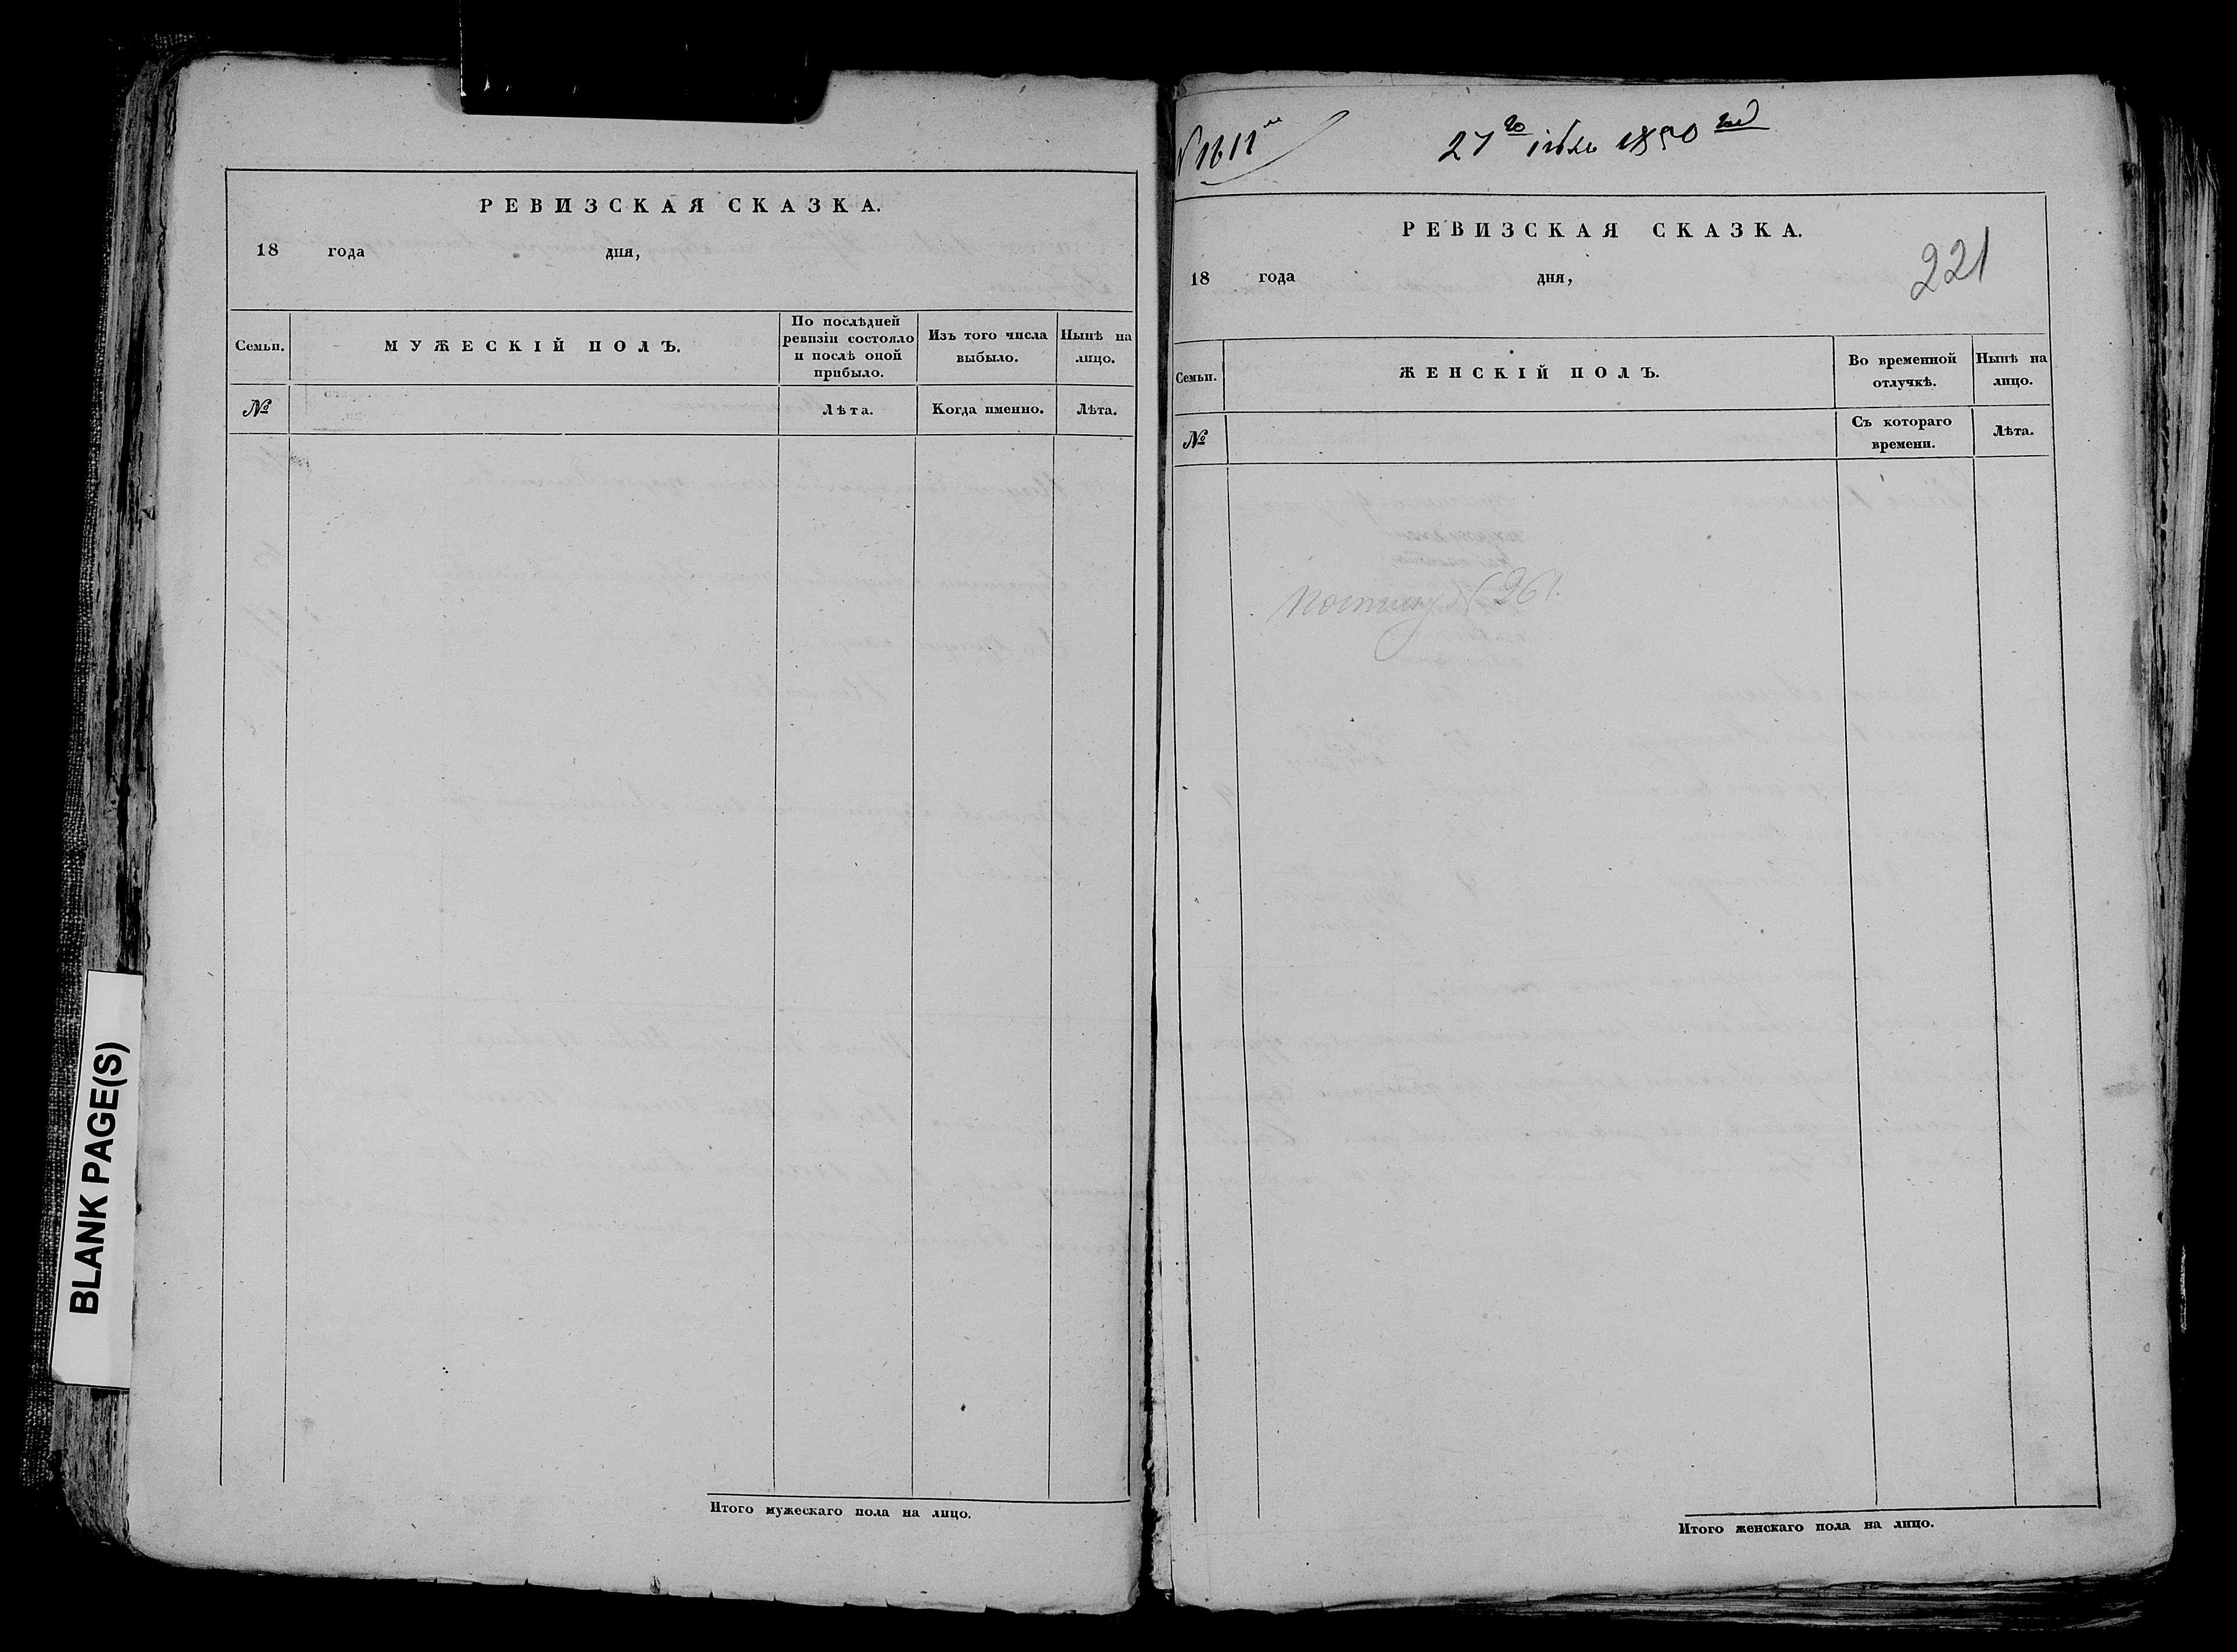 РЕВИЗСКАЯ СКАЗКА.
18 года дня,
Семьи.
МУЖЕСКІЙ ПОЛЪ.
По послѣдней
ревизіи состояло
и послѣ оной
прибыло.
Изъ того числа
выбыло.
Нынѣ на
лицо.
№
Лѣта.
Когда именно.
Лѣта.
Итого мужескаго пола на лицо.
BLANK PAGE(S)
27го 1850 год
РЕВИЗСКАЯ СКАЗКА.
221
18 года дня,
Семьи.
ЖЕНСКІЙ ПОЛЪ.
Во временной
отлучкѣ.
Нынѣ на
лицо.
№
Съ котораго
времени.
Лѣта.
261.
Итого женскаго пола на лицо.